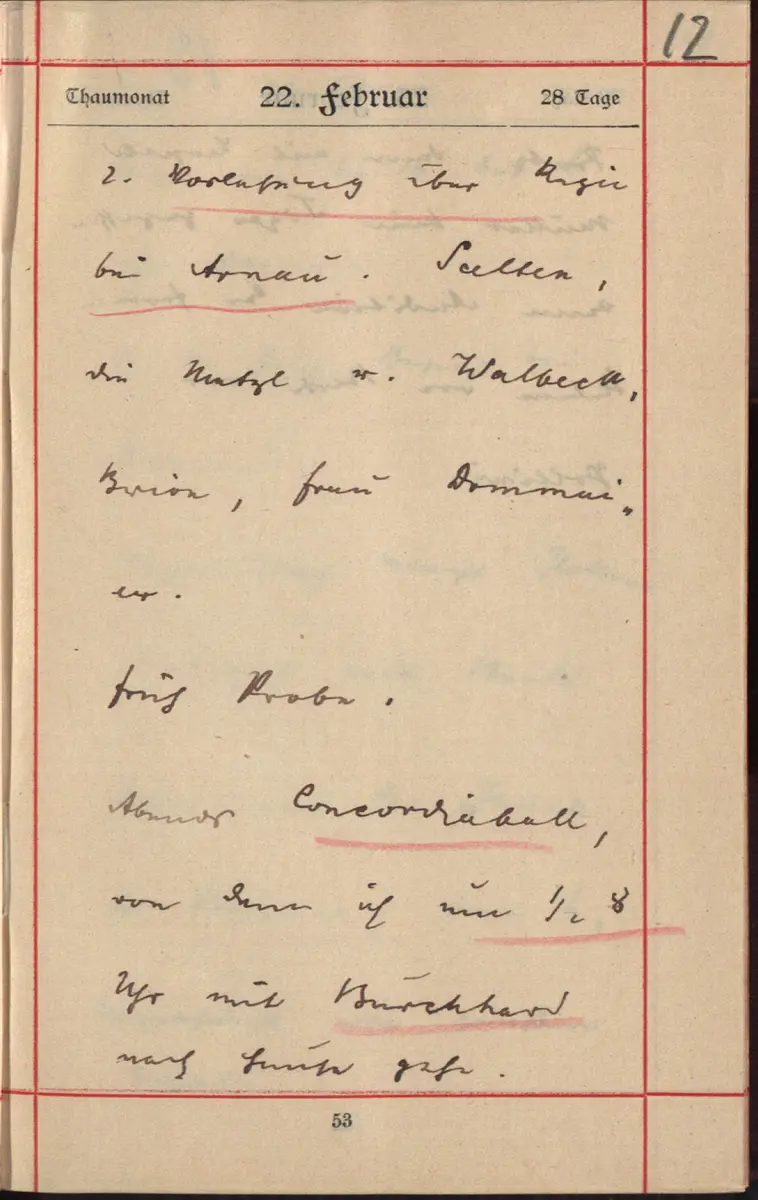 12
Thaumonat 22. Februar 28 Tage
2. Vorlesung über Regie
bei Arnau. Salten,
die Metzl v. Walbeck,
Brion, Frau Dommai„
er.
früh Probe.
Abends Concordiaball,
von dem ich um 1/2 8
Uhr mit Burckhard
nach Hause gehe.
53